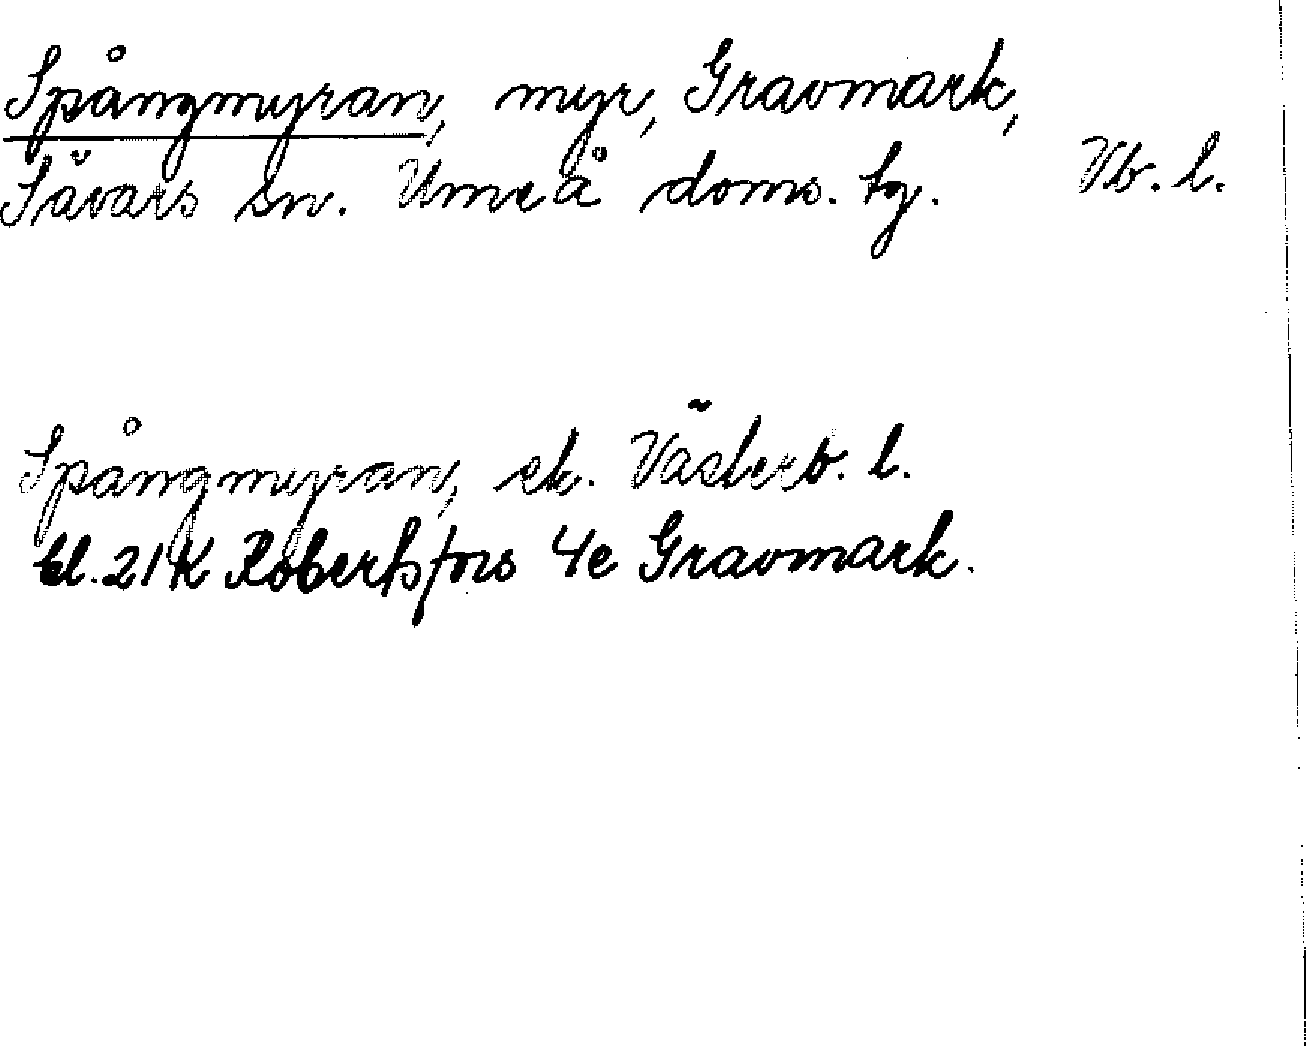 Spångmyran, myr, Gravmark,
Sävars sn. Umeå doms. tg. Vb. l.
Spångmyran, ek. Västerb. l.
bl. 21K Robertsfors 4e Gravmark.